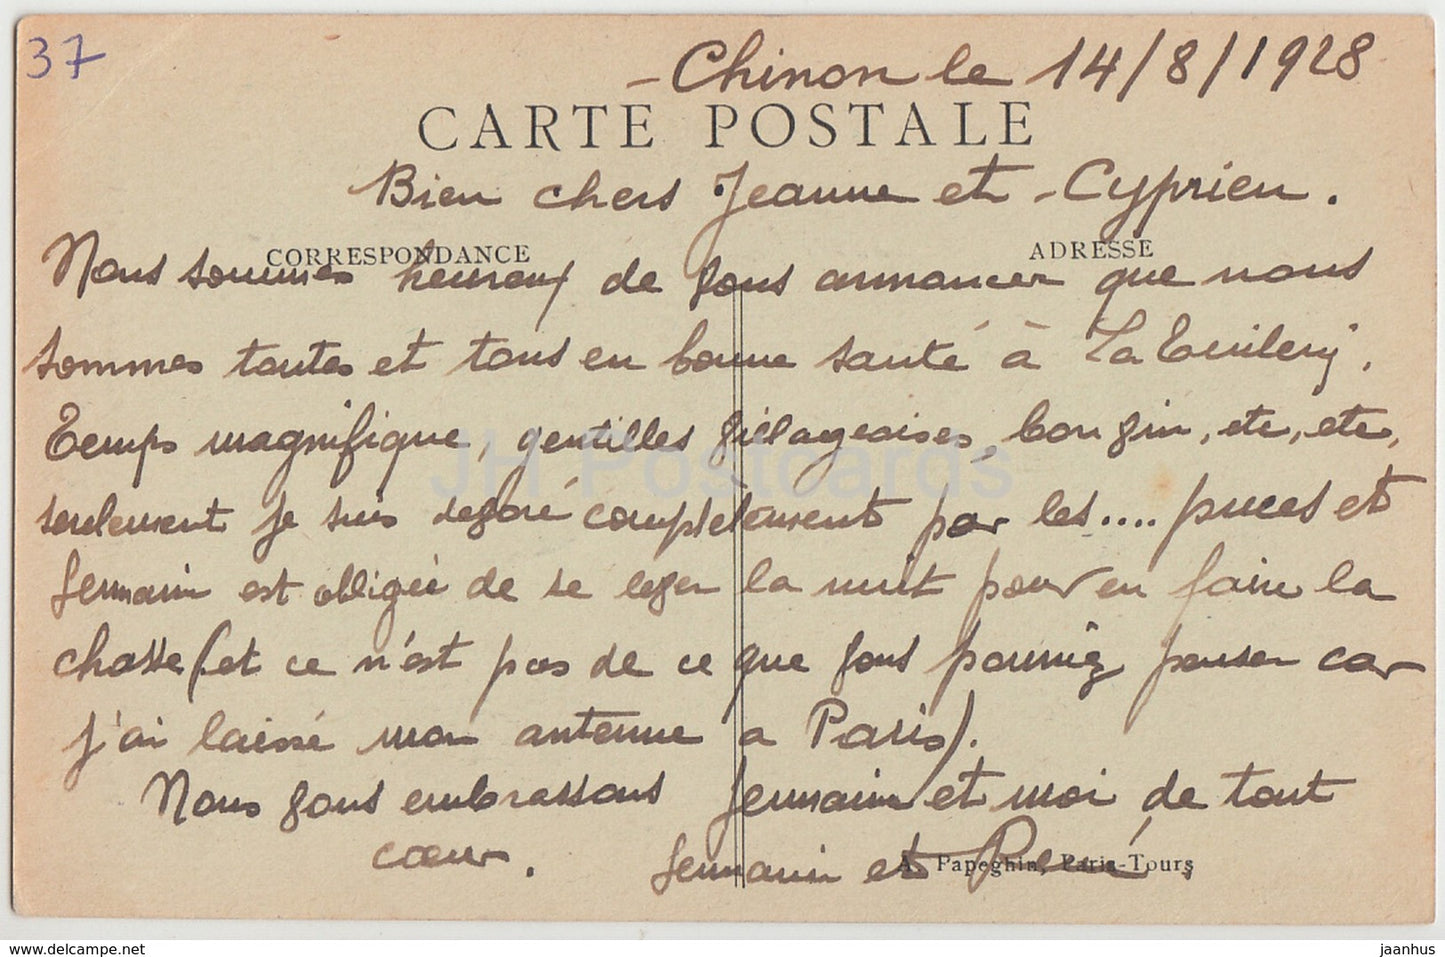 37
- Chinon le 14/8/1928
CARTE POSTALE
Bien chers Jeanne et Cyprien.
CORRESPONDANCE
ADRESSE
Nous sommes heureux de vous annoncer que nous
sommes toutes et tous en bonne santé à La Tuilerij.
Temps magnifique, gentilles villageoises, bon vin, etc, etc,
seulement je suis devoré completement par les.... puces et
Germain est obligée de se lever la nuit pour en faire la
chasse (et ce n'est pas de ce que vous pourriez penser car
j'ai laissé mon antenne a Paris).
Nous vous embrassons Germain et moi de tout
cœur.
Germain et René.
A. Papeghin, Paris-Tours
JH Postcards
https://www.delcampe.net
jaanhus